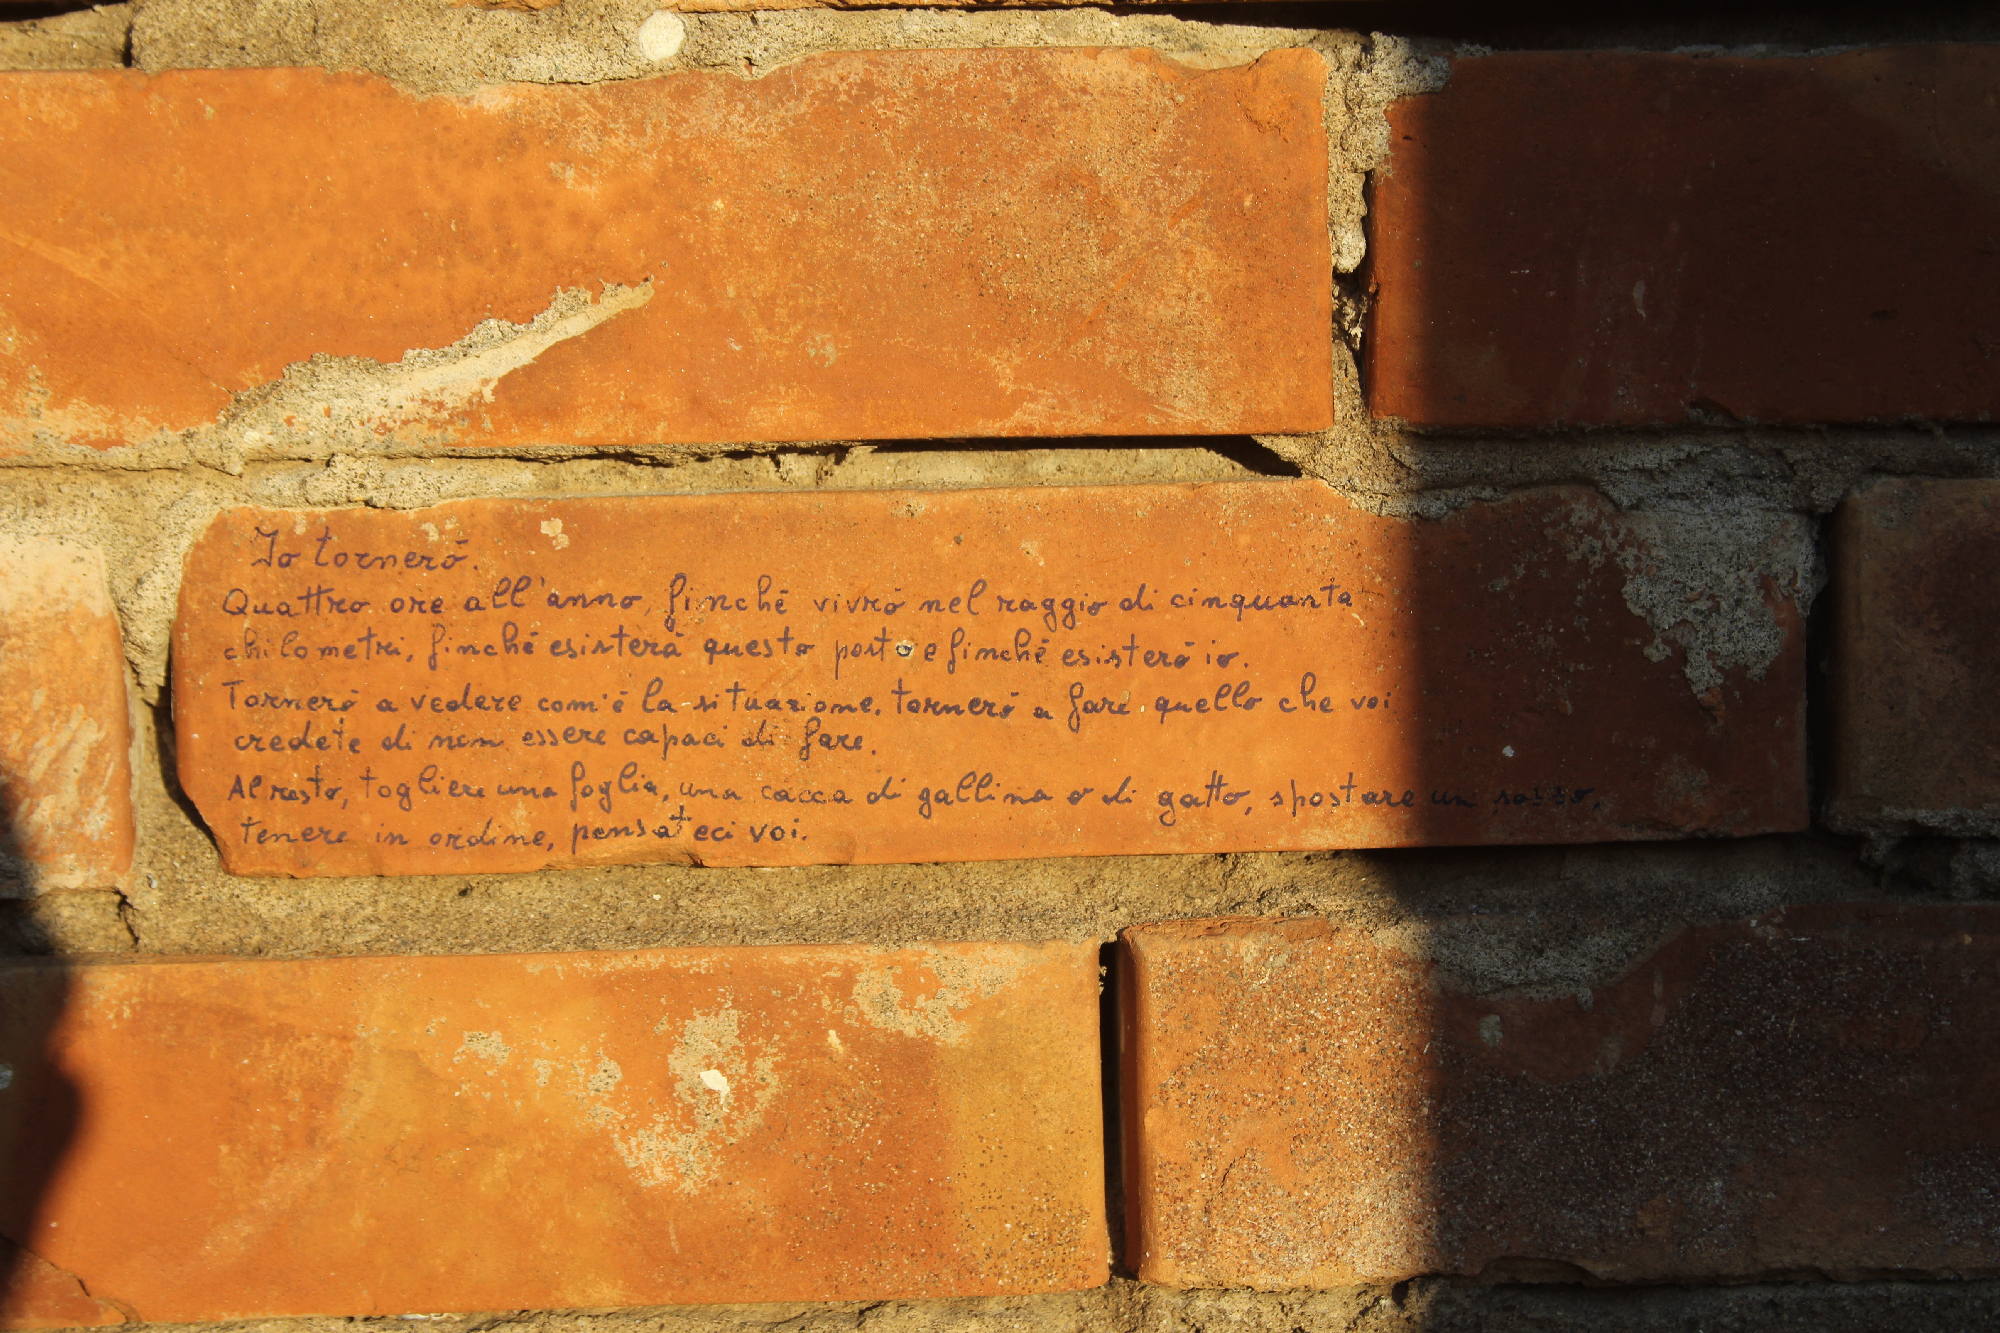 Io tornerò.
Quattro ore all'anno, finché vivrò nel raggio di cinquanta
chilometri, finché esisterà questo posto e finché esisterò io.
Tornerò a vedere com'è la situazione, tornerò a fare quello che voi
credete di non essere capaci di fare.
Al resto, togliere una foglia, una cacca di gallina o di gatto, spostare un sasso,
tenere in ordine, pensateci voi.